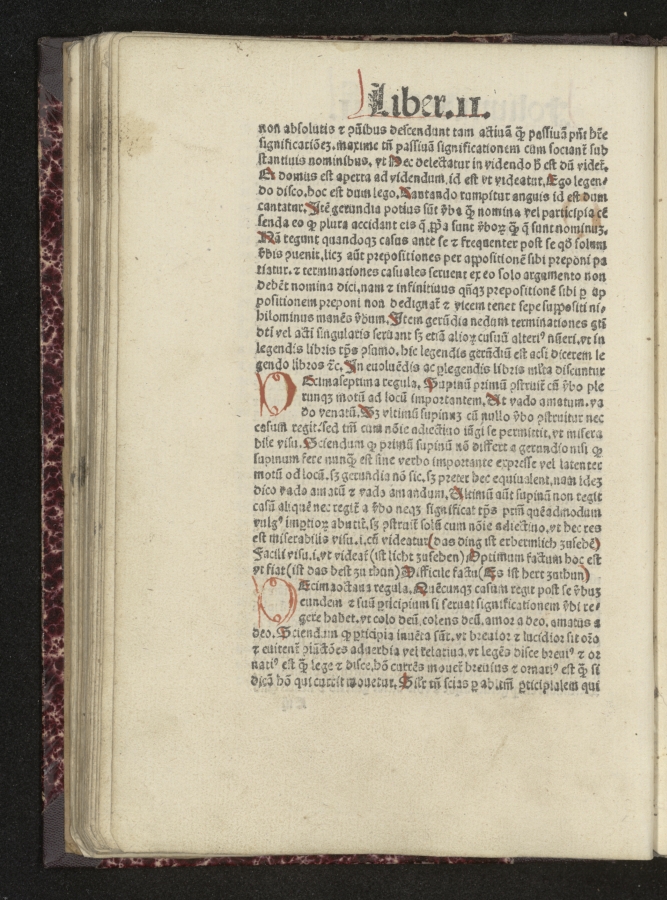 Liber.II.
non absolutis ⁊ ꝯ̃ibus descendunt tam actiuã ꝙ̃ passiuã pn̄t hr̃e
significatiõeȝ. maxime tñ passiuã significationem cum sociant᷑ sub
stantiuis nominibus, vt Nec delectatur in videndo .i. est dũ videt᷑.
Et domus est aperta ad videndum, id est vt videatur. Ego legen-
do disco, hoc est dum lego. Cantando rumpitur anguis id est dum
cantatur. Itẽ gerundia potius sũt v̾ba ꝙ̃ nomina vel participia cẽ
senda eo ꝙ plura accidant eis q̃ ꝓp̃a sunt v̾boꝝ ꝙ̃ q̃ sunt nominuȝ.
Nã regunt quandoqȝ casus ante se ⁊ frequenter post se qd̾ solum
v̾bis ꝯuenit, licȝ aũt prepositiones per appositionẽ sibi preponi pa
tiatur. ⁊ terminationes casuales seruent ex eo solo argumento non
debẽt nomina dici, nam ⁊ infinitiuus qñqȝ prepositionẽ sibi ꝑ ap
positionem preponi non dedignat᷑ ⁊ vicem tenet sepe suppositi ni-
hilominus manẽs v̾bum. Item gerũdia nedum terminationes gtĩ
dtĩ vel acti singularis seruant sȝ etiã alioꝝ casuũ alteriꝰ nũeri. vt in
legendis libris tp̃s ꝯsumo. hic legendis gerũdiũ est acsi dicerem le
gendo libros ⁊c̃. In euoluẽdis ac ꝑlegendis libris ml̃ta discuntur
DEcimaseptima regula. Supinũ primũ ꝯstruit᷑ cũ v̾bo ple
runqȝ motũ ad locũ importantem. Ut vado amatum. va
do venatũ. Sȝ vltimũ supinuȝ cũ nullo v̾bo ꝯstruitur nec
casum regit. sed tm̃ cum nõie adiectiuo iũgi se permittit, vt misera
bile visu. Sciendum ꝙ primũ supinũ nõ differt a gerundio nisi ꝙ
supinum fere nunqȝ est sine verbo importante expresse vel latenter
motũ ad locũ. sȝ gerundia nõ sic. sȝ preter hec equiualent, nam ideȝ
dico vado amatũ ⁊ vado amandum. Ultimũ aũt supinũ non regit
casũ aliquẽ nec regit᷑ a v̾bo neqȝ significat tp̃s ꝓut quẽadmodum
vulgꝰ imꝑitioꝝ abutit᷑. sȝ ꝯstruit᷑ solũ cum nõie adiectiuo, vt hec res
est miserabilis visu .i. cũ videatur (das ding ist erbermlich zusehẽ)
Facili visu .i. vt videat᷑ (ist licht zusehen) Optimum factum hoc est
vt fiat (ist das best zu thun) Difficile factu (Es ist hert zuthun)
DEcimaoctaua regula. Quẽcunqȝ casum regit post se v̾buȝ
eundem ⁊ suũ ꝑticipium si seruat significationem v̾bi re-
gere habet. vt colo deũ, colens deũ. amor a deo. amatus a
deo. Sciendum ꝙ ꝑticipia inuẽta sũt. vt breuior ⁊ lucidior sit or̃o
⁊ euitent᷑ ꝯiũctões aduerbia vel relatiua. vt legẽs disce breuiꝰ ⁊ or
natiꝰ est ꝙ̃ lege ⁊ disce. hõ currẽs mouet᷑ breuius ⁊ ornatiꝰ est ꝙ̃ si
dicã hõ qui currit mouetur. Sil̾r tñ scias ꝓ ablt̃m ꝑticipialem qui